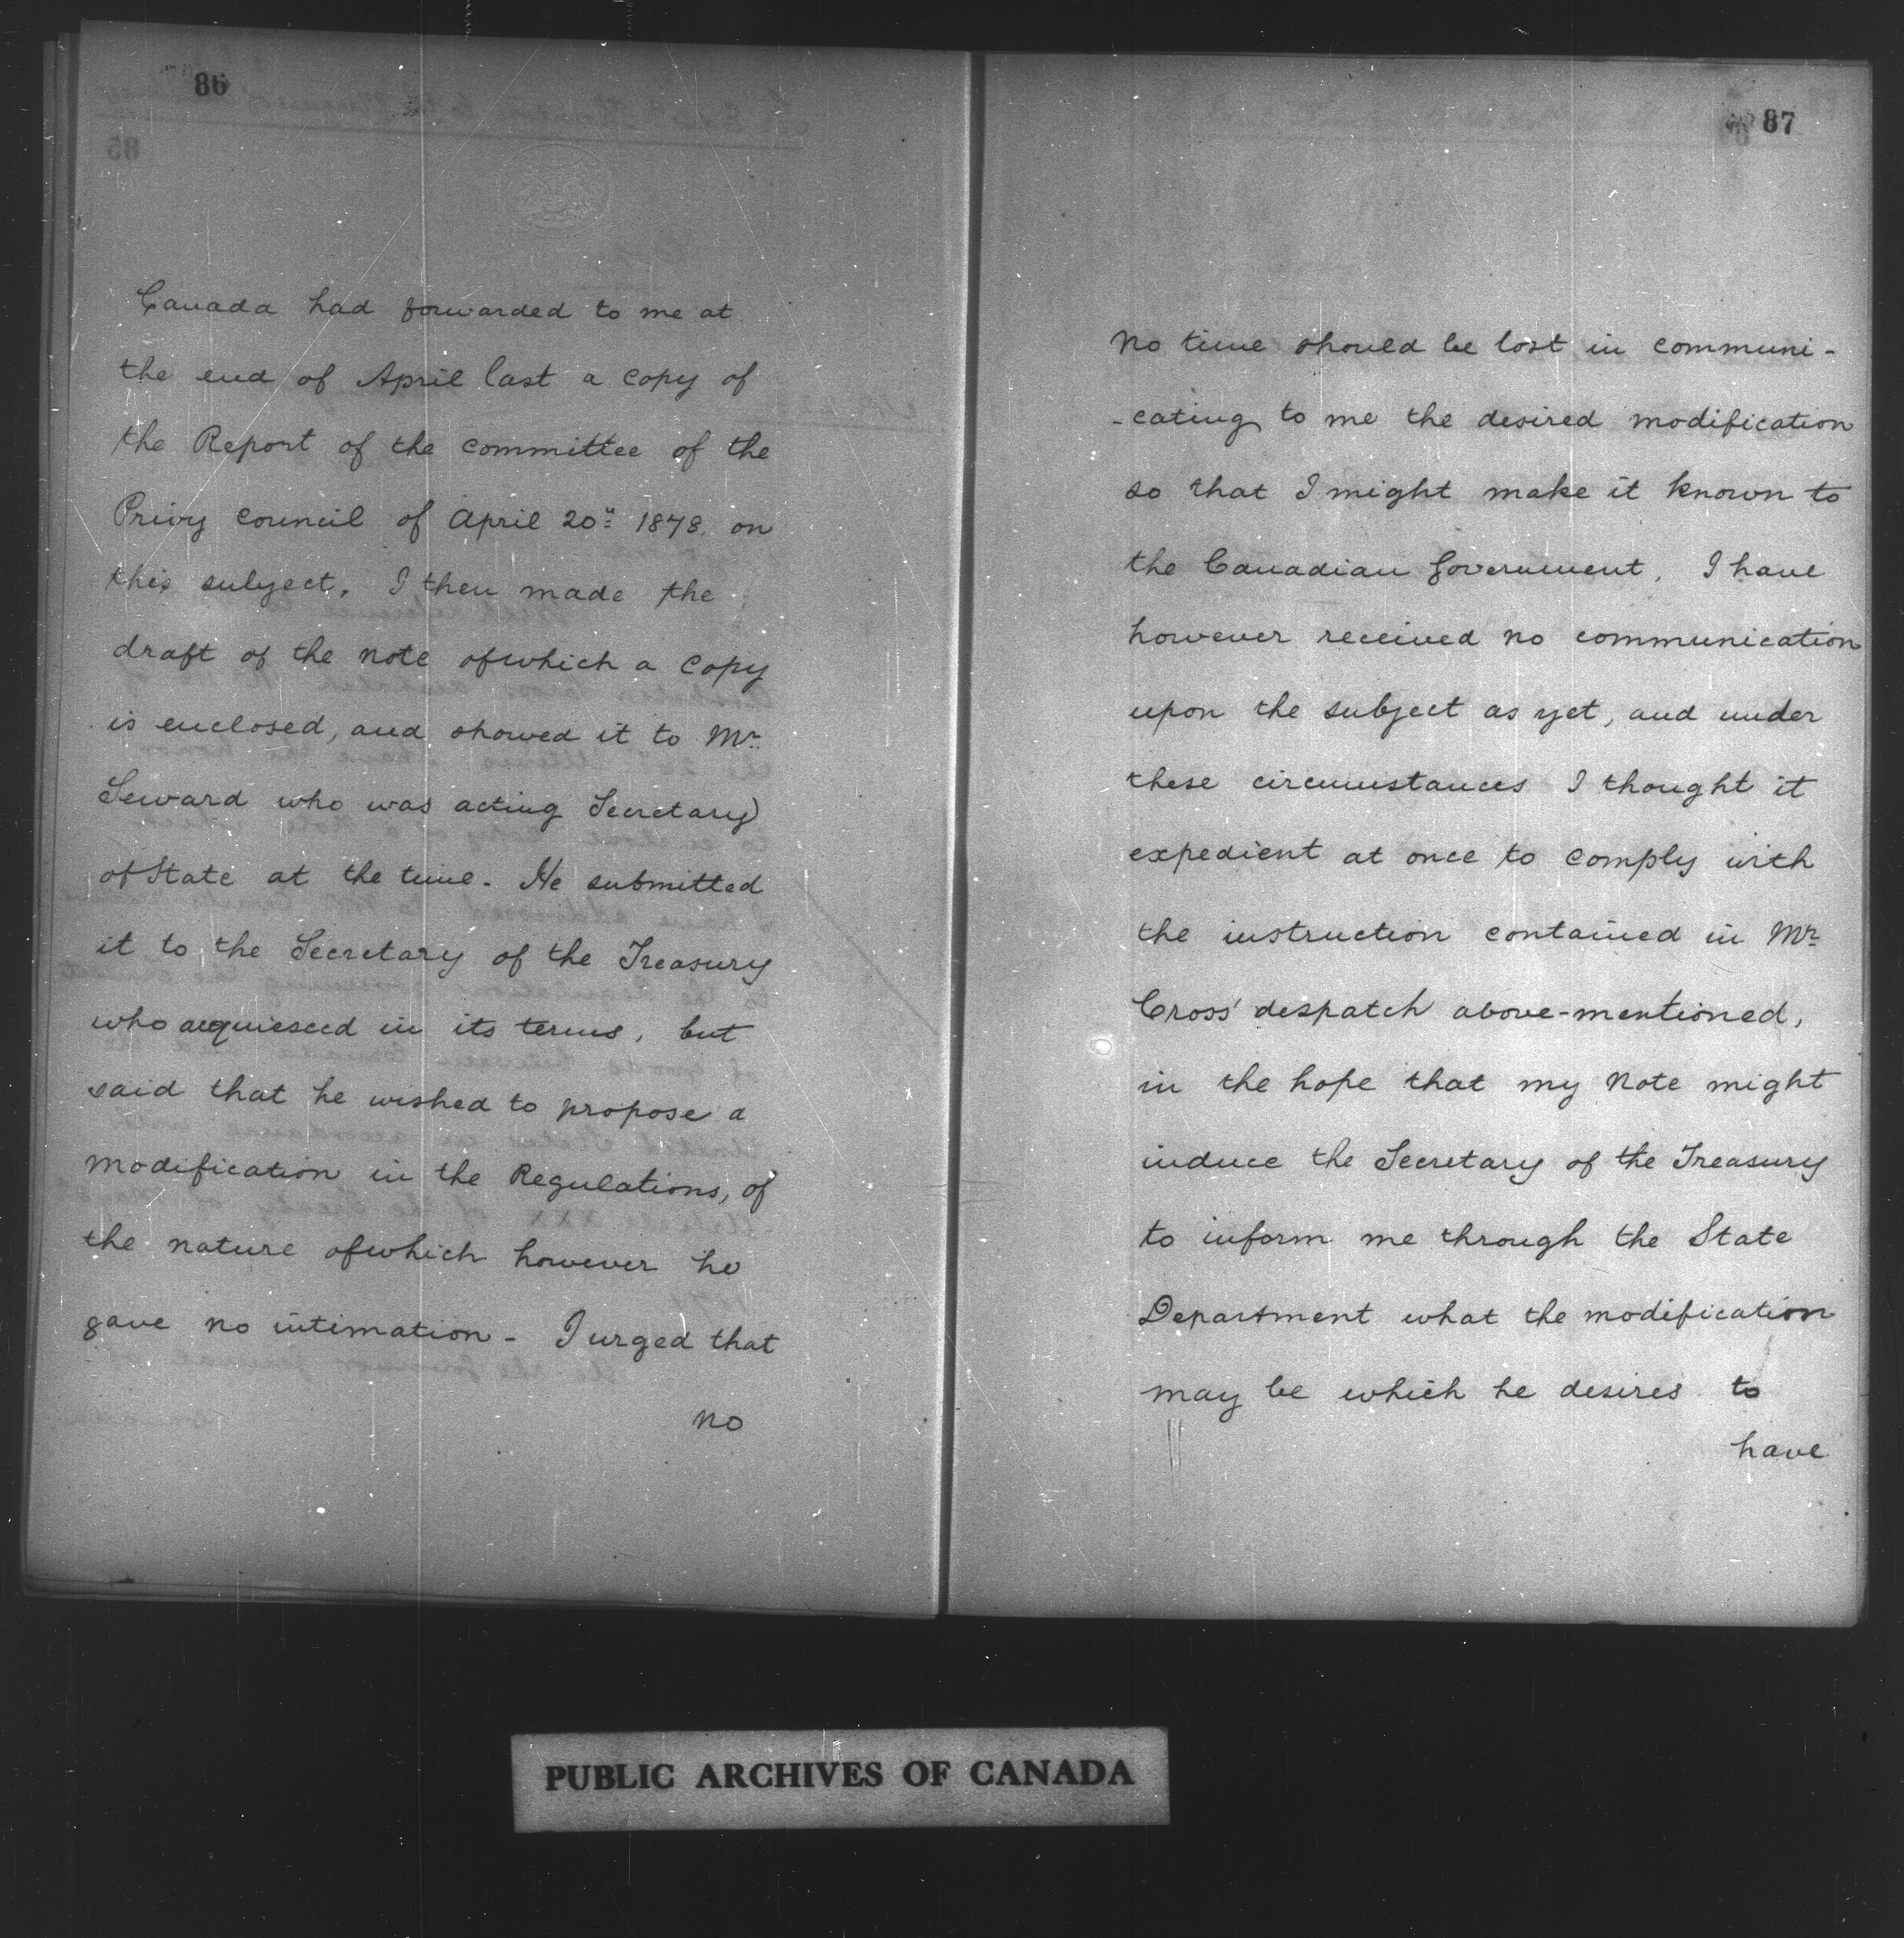 86
Canada had forwarded to me at
the end of April last a copy of
the Report of the committee of the
Privy Council of April 20" 1878. on
this subject. I then made the
draft of the note of which a copy
is enclosed, and showed it to Mr.
Seward who was acting Secretary
of State at the time. He submitted
it to the Secretary of the Treasury
who acquiesced in its terms, but
said that he wished to propose a
modification in the Regulations, of
the nature of which however he
gave no intimation - I urged that
no
87
No time should be lost in communi-
-cating to me the desired modification
so that I might make it known to
the Canadian Government. I have
however received no communication
upon the subject as yet, and under
these circumstances I thought it
expedient at once to comply with
the instruction contained in Mr.
Cross' despatch above-mentioned,
in the hope that my Note might
induce the Secretary of the Treasury
to inform me through the State
Department what the modification
may be which he desires to
have
PUBLIC ARCHIVES OF CANADA